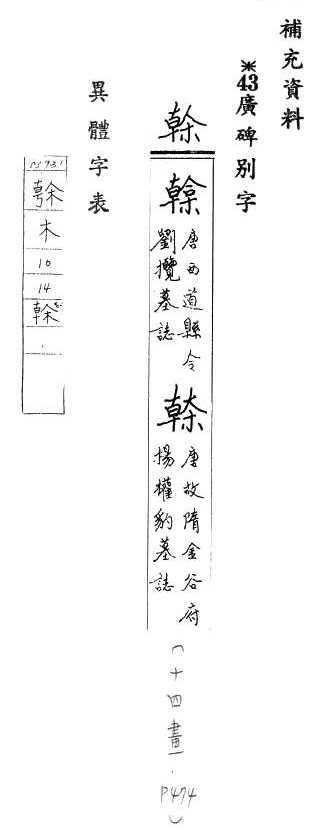 補充資料
※43廣碑別字
榦
唐西道縣令
劉攬墓誌
唐故隋金谷府
揚權豹墓誌
(十四畫.P474)
異體字表
木
10
14
榦